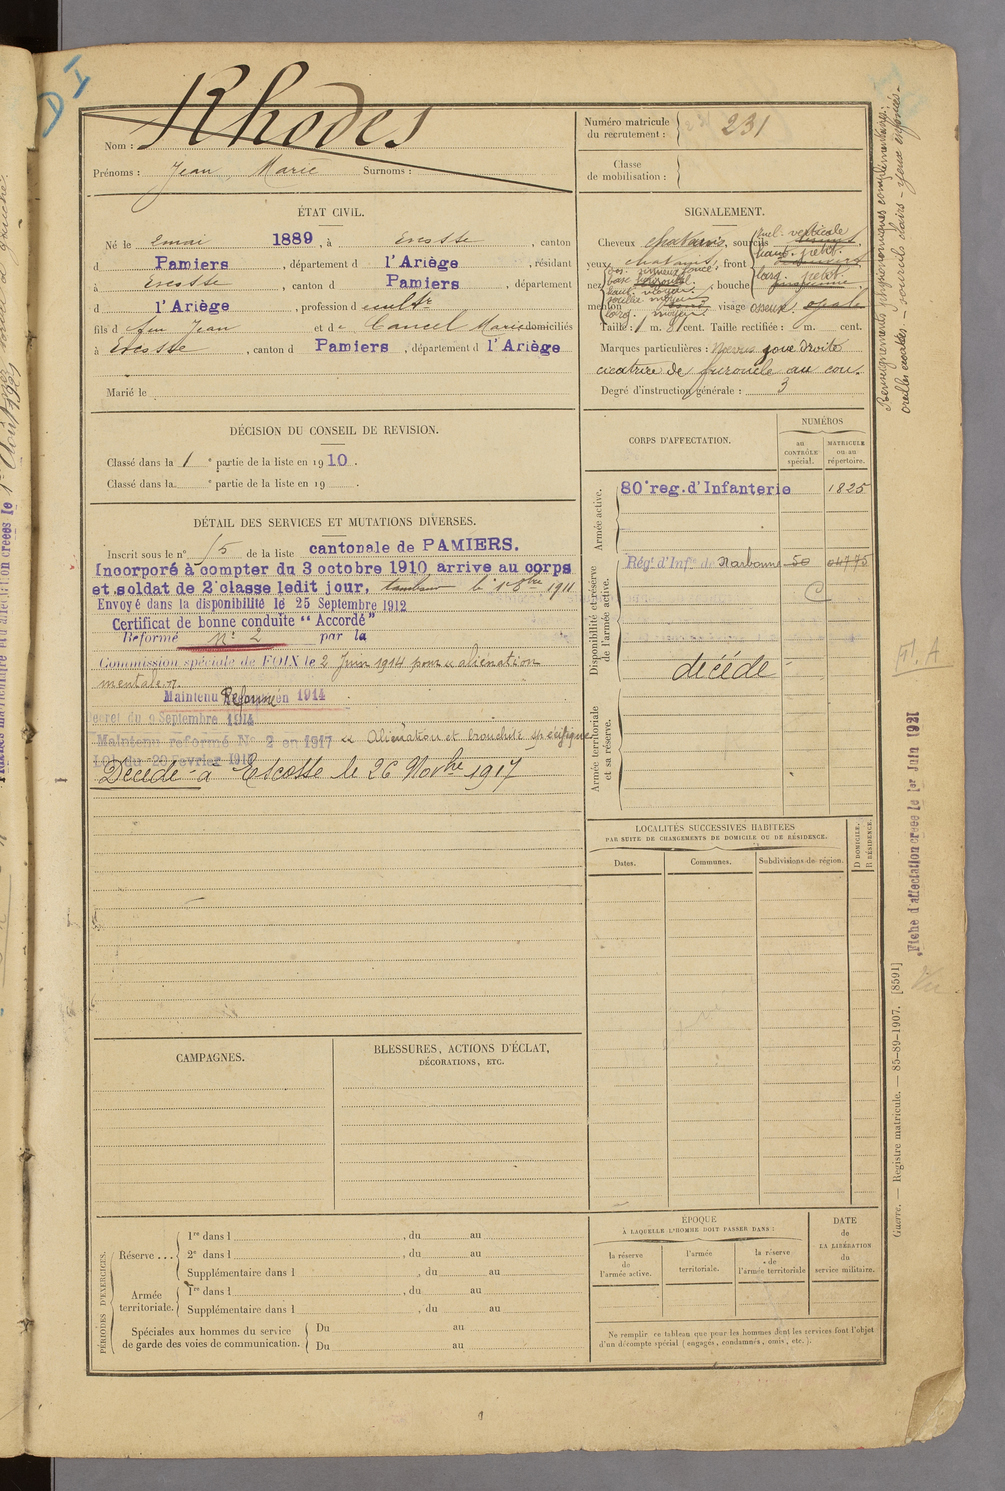 D I
Nom : Rhodes
Prénoms : Jean, Marie Surnoms :
Numéro matricule du recrutement : 231
Classe de mobilisation :
ÉTAT CIVIL.
Né le 2 mai 1889, à Escosse, canton
d Pamiers, département d l'Ariège, résidant
à Escosse, canton d Pamiers, département
d l'Ariège, profession d cultr
fils d feu Jean et de Cancel Marie domiciliés
à Escosse, canton d Pamiers, département d l'Ariège
Marié le
SIGNALEMENT.
Cheveux chatains, sourcils
yeux chatains, front
nez, bouche
menton, visage osseux
incl. verticale
haut. petite
larg. petite
Taille : 1 m. cent. Taille rectifiée : m. cent.
Marques particulières : Naevus joue droite
cicatrice de furoncle au cou.
Degré d'instruction générale : 3
DÉCISION DU CONSEIL DE REVISION.
Classé dans la 1e partie de la liste en 1910.
Classé dans la e partie de la liste en 19 .
DÉTAIL DES SERVICES ET MUTATIONS DIVERSES.
Inscrit sous le n° 15 de la liste cantonale de PAMIERS.
Incorporé à compter du 3 octobre 1910 arrive au corps
et soldat de 2e classe ledit jour, tambour le 1er 8bre 1911
Envoyé dans la disponibilité le 25 Septembre 1912
Certificat de bonne conduite "Accordé"
Réformé N° 2 par la
Commission spéciale de FOIX le 2 Juin 1914 pour « aliénation
mentale ».
Maintenu Réformé en 1914
Décret du 9 Septembre 1914
Maintenu réformé N° 2 en 1917 « Aliénation et bronchite spécifique
Loi du 20 Février 1917
Décédé à Escosse le 26 Novbre 1917
CORPS D'AFFECTATION.
NUMÉROS
au CONTRÔLE spécial.
MATRICULE ou au répertoire.
Armée active.
80e reg. d'Infanterie 1825
Disponibilité et réserve de l'armée active.
Régt d'Infie de Narbonne 50 04775
décédé
Armée territoriale et sa réserve.
LOCALITÉS SUCCESSIVES HABITÉES
PAR SUITE DE CHANGEMENTS DE DOMICILE OU DE RÉSIDENCE.
Dates. Communes. Subdivisions de région.
D DOMICILE.
R RÉSIDENCE.
CAMPAGNES.
BLESSURES, ACTIONS D'ÉCLAT,
DÉCORATIONS, ETC.
PÉRIODES D'EXERCICES.
Réserve ...
1re dans l , du au
2e dans l , du au
Supplémentaire dans l , du au
Armée territoriale.
1re dans l , du au
Supplémentaire dans l , du au
Spéciales aux hommes du service
de garde des voies de communication.
Du au
Du au
ÉPOQUE
À LAQUELLE L'HOMME DOIT PASSER DANS :
la réserve de l'armée active.
l'armée territoriale.
la réserve de l'armée territoriale
DATE
de
LA LIBÉRATION
du
service militaire.
Ne remplir ce tableau que pour les hommes dont les services font l'objet
d'un décompte spécial (engagés, condamnés, omis, etc.).
Renseignements physionomiques complémentaires :
oreilles écartées - sourcils clairs - yeux enfoncés -
Fiche d'affectation créée le 1er Juin 1921
Guerre. — Registre matricule. — 85-89-1907. [8591]